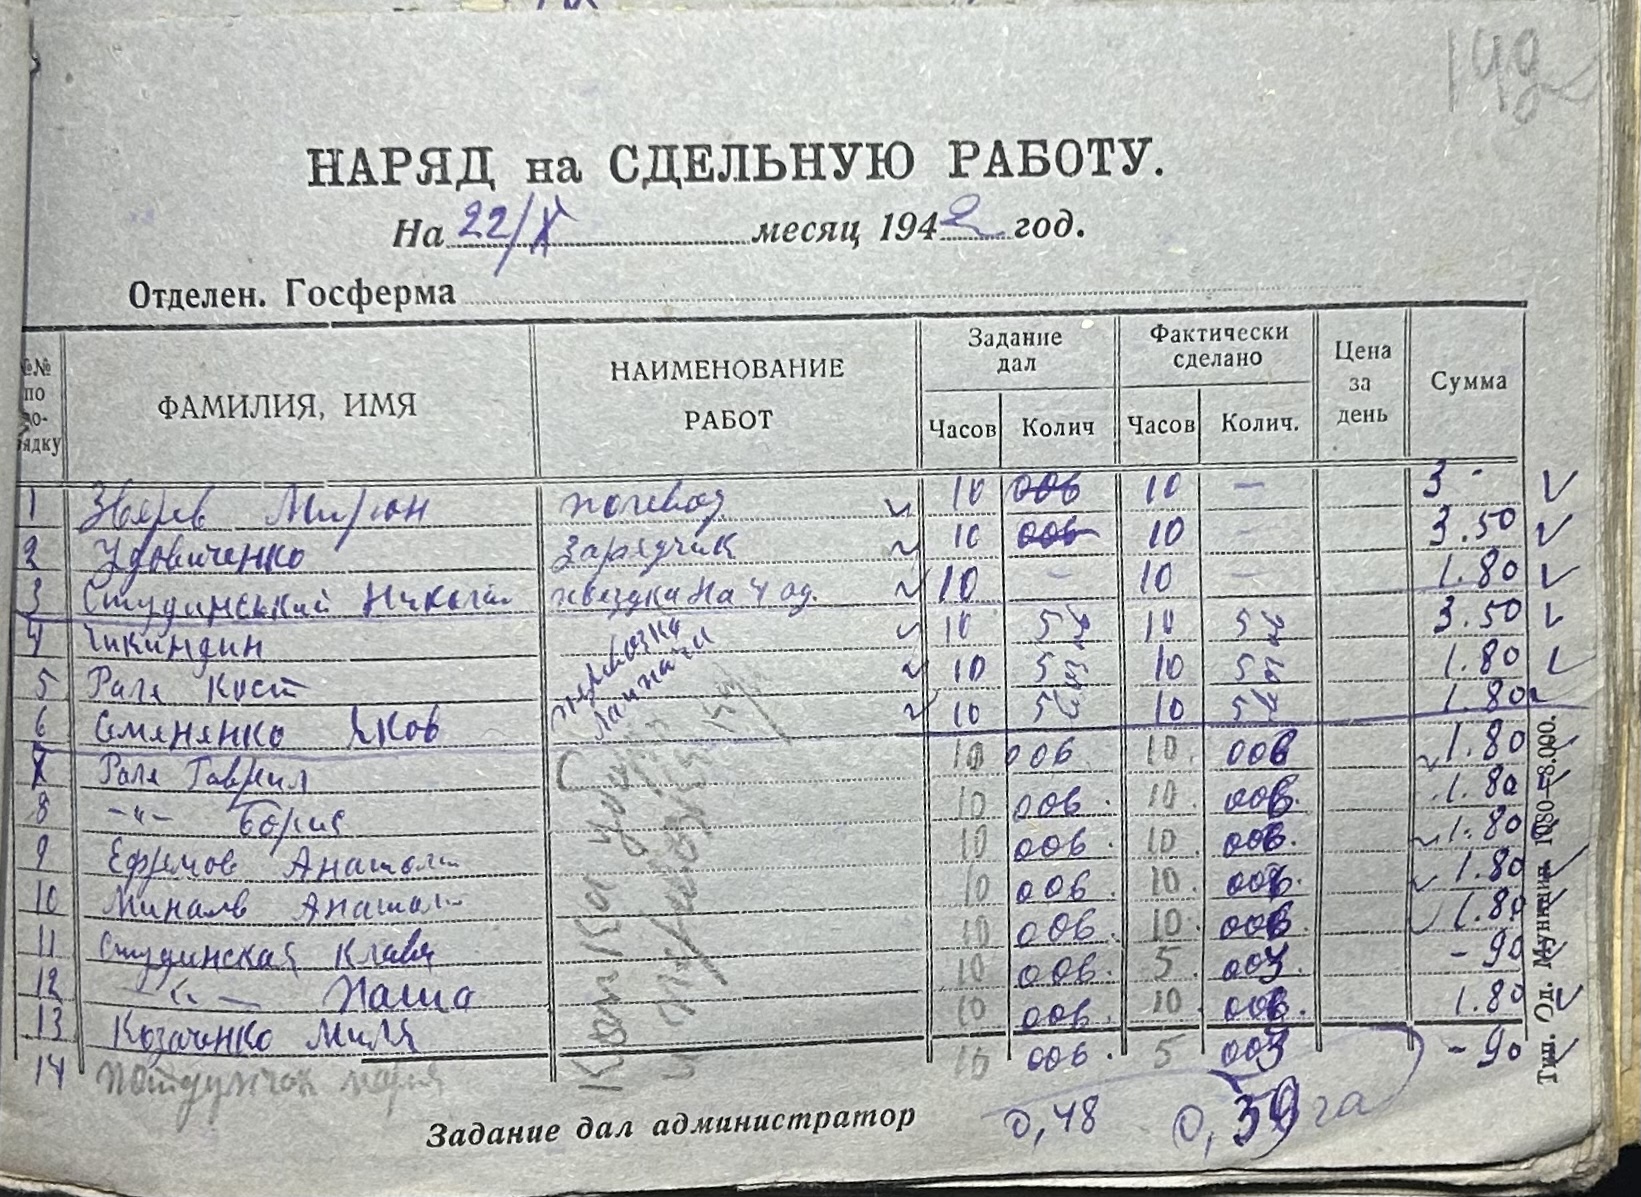 142
НАРЯД на СДЕЛЬНУЮ РАБОТУ.
На 22/X месяц 1942 год.
Отделен. Госферма
№№ по порядку ФАМИЛИЯ, ИМЯ НАИМЕНОВАНИЕ РАБОТ Задание дал Фактически сделано Цена за день Сумма
Часов Колич Часов Колич.
1 Зверев Мирон полевод 10 006 10 — 3 -
2 Удовиченко Зарядчик 10 006 10 — 3.50
3 Студинський Николай поездка на 4 од. 10 — 10 — 1.80
4 Чикиндин перевозка 10 5 10 5 3.50
5 Раля Кост 10 5 10 5 1.80
6 Семяненко Яков 10 5 10 5 1.80
7 Раля Гаврил Копка 10 006 10 006 1.80
8 -"- Борис 10 006. 10 006. 1.80
9 Ефремов Анатоли 10 006. 10 006. 1.80
10 Минаев Анатоли 10 006. 10 006. 1.80
11 Студинская Клавя 10 006. 10 006 1.80
12 -"- Паша 10 006. 5 003. - 90
13 Козаченко Миля 10 006. 10 006. 1.80
14 Мария 10 006. 5 003 - 90
Задание дал администратор 0,48 0,39 га
Тип. Од. Муницип. 1080—8.000.